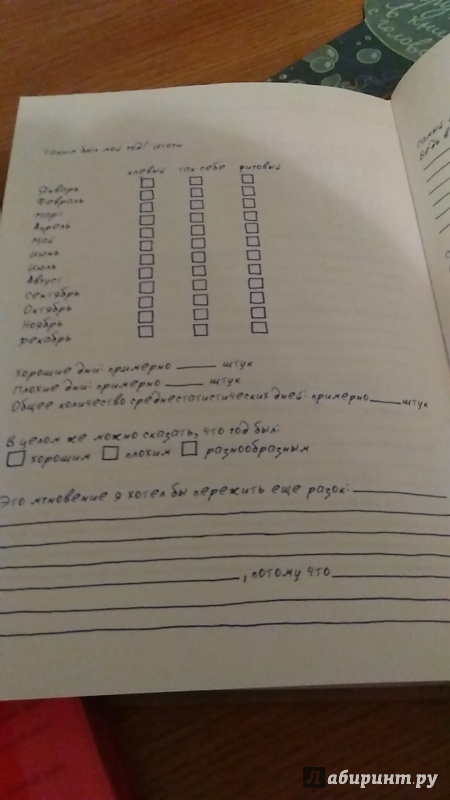 Таким был мой год! Итоги
клевый так себе фиговый
Январь
Февраль
Март
Апрель
Май
Июнь
Июль
Август
Сентябрь
Октябрь
Ноябрь
Декабрь
Хорошие дни: примерно ______ штук
Плохие дни: примерно ______ штук
Общее количество среднестатистических дней: примерно _____ штук
В целом же можно сказать, что год был:
хорошим плохим разнообразным
Это мгновение я хотел бы пережить еще разок:
, потому что
Самый
Ведь в
в кни
с голово
Лабиринт.ру